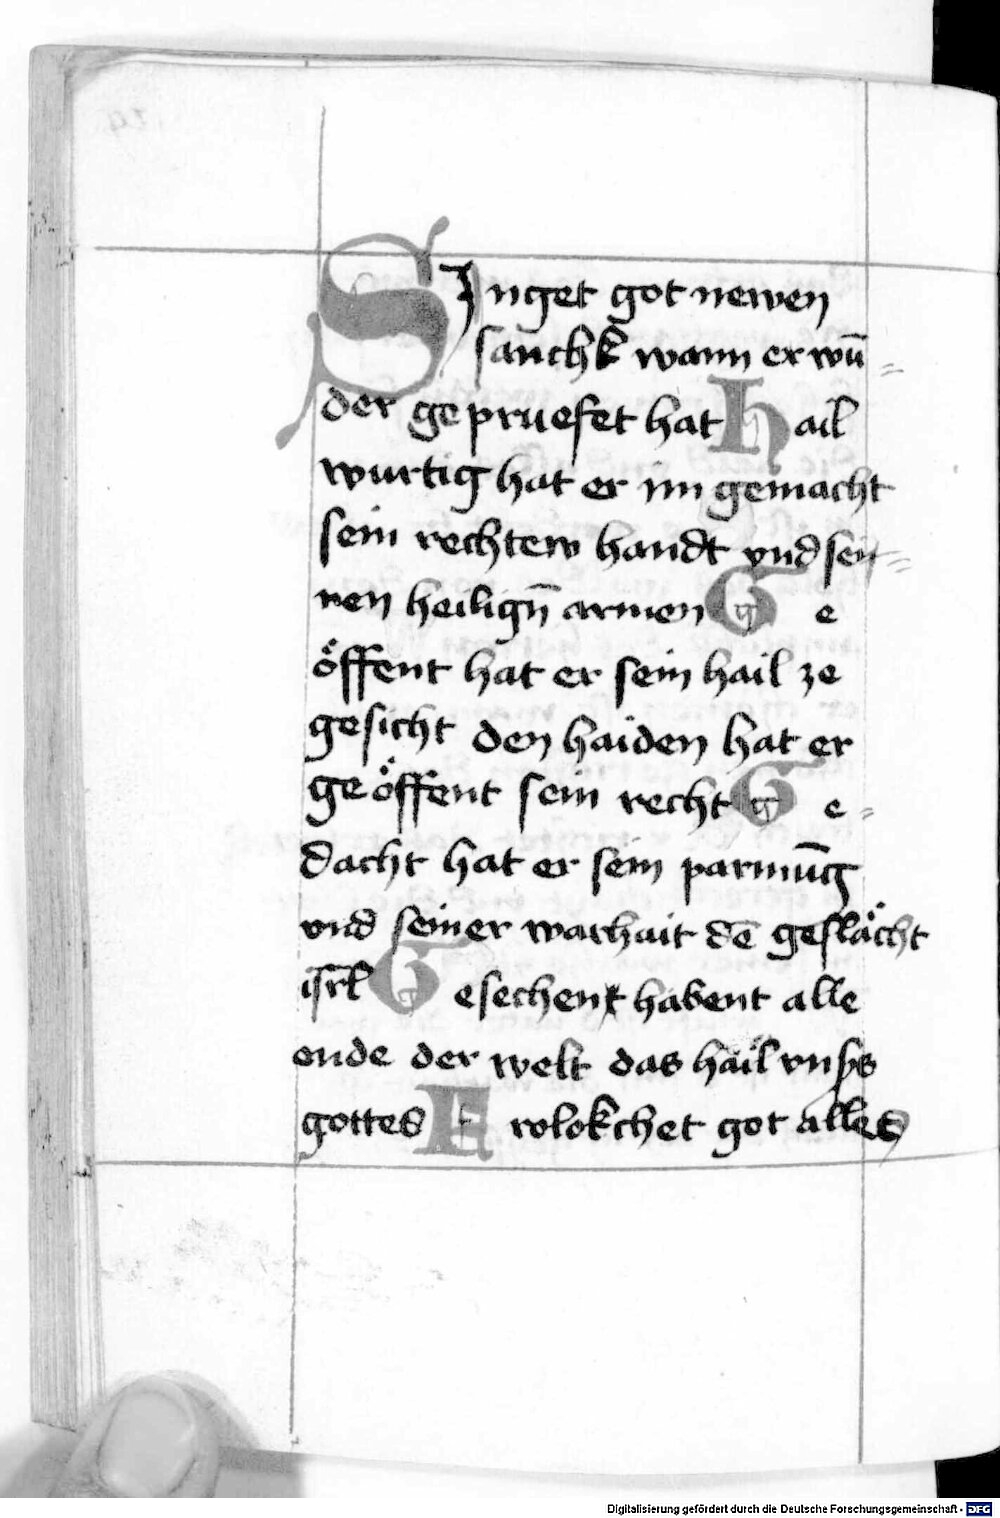 SInget got newen
sanchk wann er wū=
der gepruefet hat Hail
wurtig hat er im gemacht
sein rechtew handt vnd sei=
nen heilign̄ armen Ge
öffent hat er sein hail ze
gesicht den haiden hat er
geöffent sein recht Ge=
dacht hat er sein parmūg
vnd seiner warhait dē geslächt
isrl̄ Gesechent habent alle
ende der welt das hail vnsers
gottes Frolokchet got alles
Digitalisierung gefördert durch die Deutsche Forschungsgemeinschaft - DFG